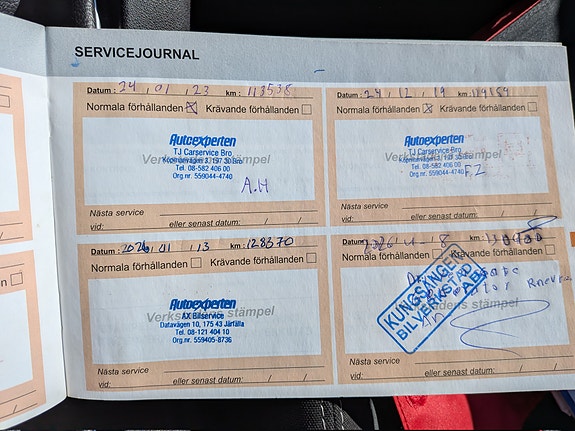 SERVICEJOURNAL
Datum: 24 / 01 / 23 km: 113538
Normala förhållanden Krävande förhållanden
Autoexperten
TJ Carservice Bro
Köpmanvägen 3, 197 30 Bro
Tel. 08-582 406 00
Org.nr. 559044-4740
Verkstadens stämpel
A.H
Nästa service
vid: eller senast datum: / /
Datum: 24 / 12 / 19 km:
Normala förhållanden Krävande förhållanden
Autoexperten
TJ Carservice Bro
Köpmanvägen 3, 197 30 Bro
Tel. 08-582 406 00
Org.nr. 559044-4740
Verkstadens stämpel
F.Z
Nästa service
vid: eller senast datum: / /
Datum: 2026 / 01 / 13 km: 128370
Normala förhållanden Krävande förhållanden
Autoexperten
AX Bilservice
Datavägen 10, 175 43 Järfälla
Tel. 08-121 404 10
Org.nr. 559405-8736
Verkstadens stämpel
Nästa service
vid: eller senast datum: / /
Datum: 2026 km:
Normala förhållanden Krävande förhållanden
KUNGSÄNGEN
BILVERKSTAD AB
Verkstadens stämpel
Nästa service
vid: eller senast datum: / /